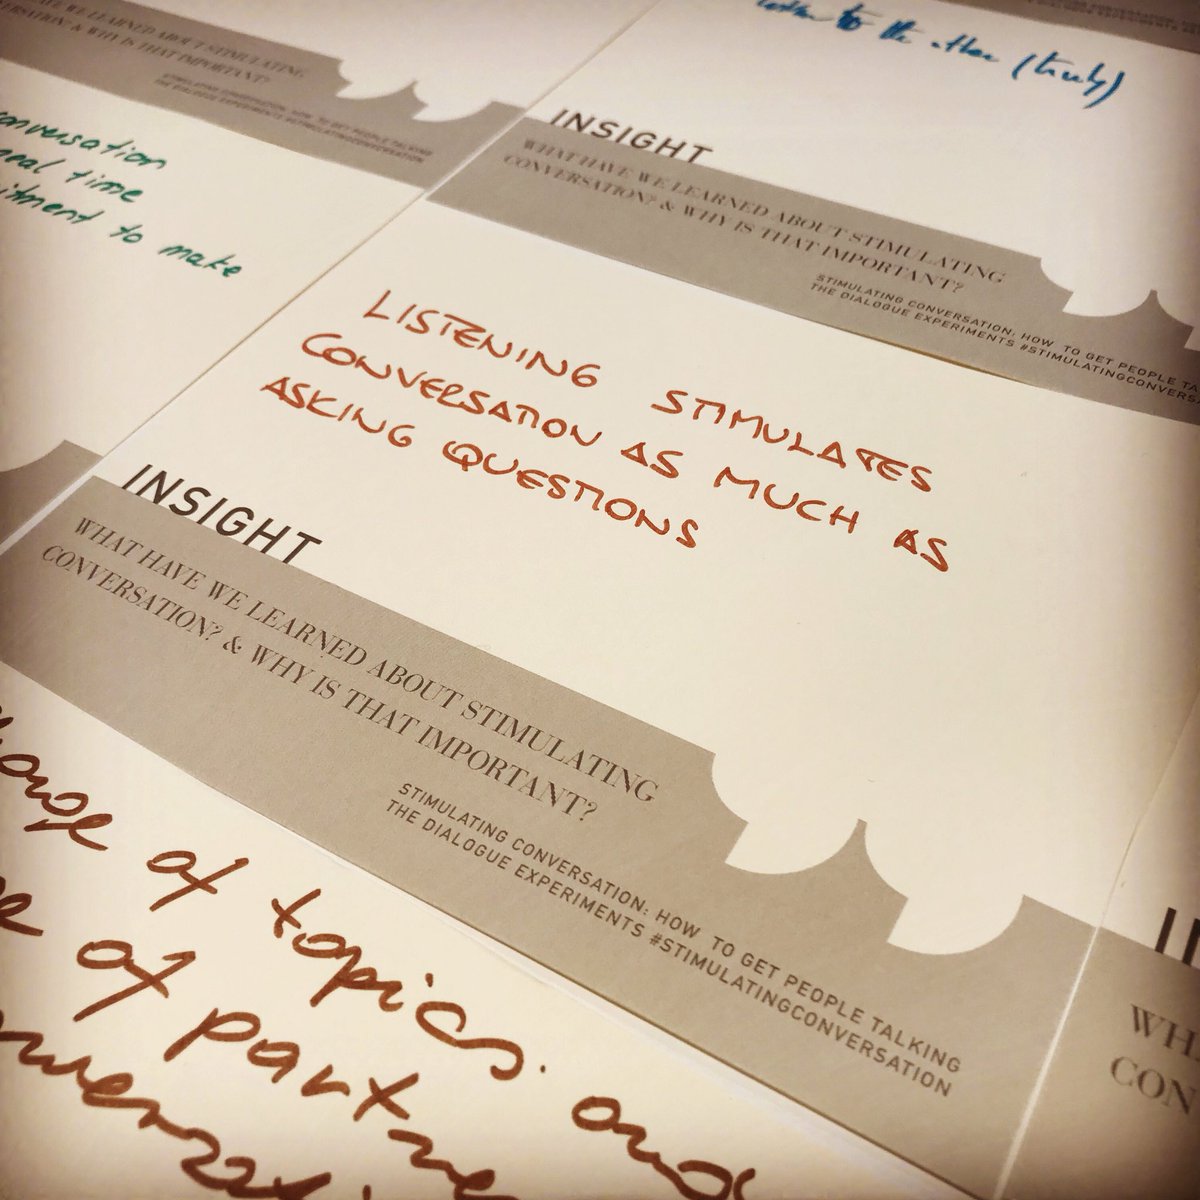 WE LEARNED ABOUT STIMULATING
CONVERSATION? & WHY IS THAT IMPORTANT?
STIMULATING CONVERSATION: HOW TO GET PEOPLE TALKING
THE DIALOGUE EXPERIMENTS #STIMULATINGCONVERSATION
conversation
real time
to make
to the other (truly)
INSIGHT
WHAT HAVE WE LEARNED ABOUT STIMULATING
CONVERSATION? & WHY IS THAT IMPORTANT?
STIMULATING CONVERSATION: HOW TO GET PEOPLE TA
THE DIALOGUE EXPERIMENTS #STIMULATINGCONVERSA
LISTENING STIMULATES
CONVERSATION AS MUCH AS
ASKING QUESTIONS
INSIGHT
WHAT HAVE WE LEARNED ABOUT STIMULATING
CONVERSATION? & WHY IS THAT IMPORTANT?
STIMULATING CONVERSATION: HOW TO GET PEOPLE TALKING
THE DIALOGUE EXPERIMENTS #STIMULATINGCONVERSATION
of topics and
of partne
WH
CON